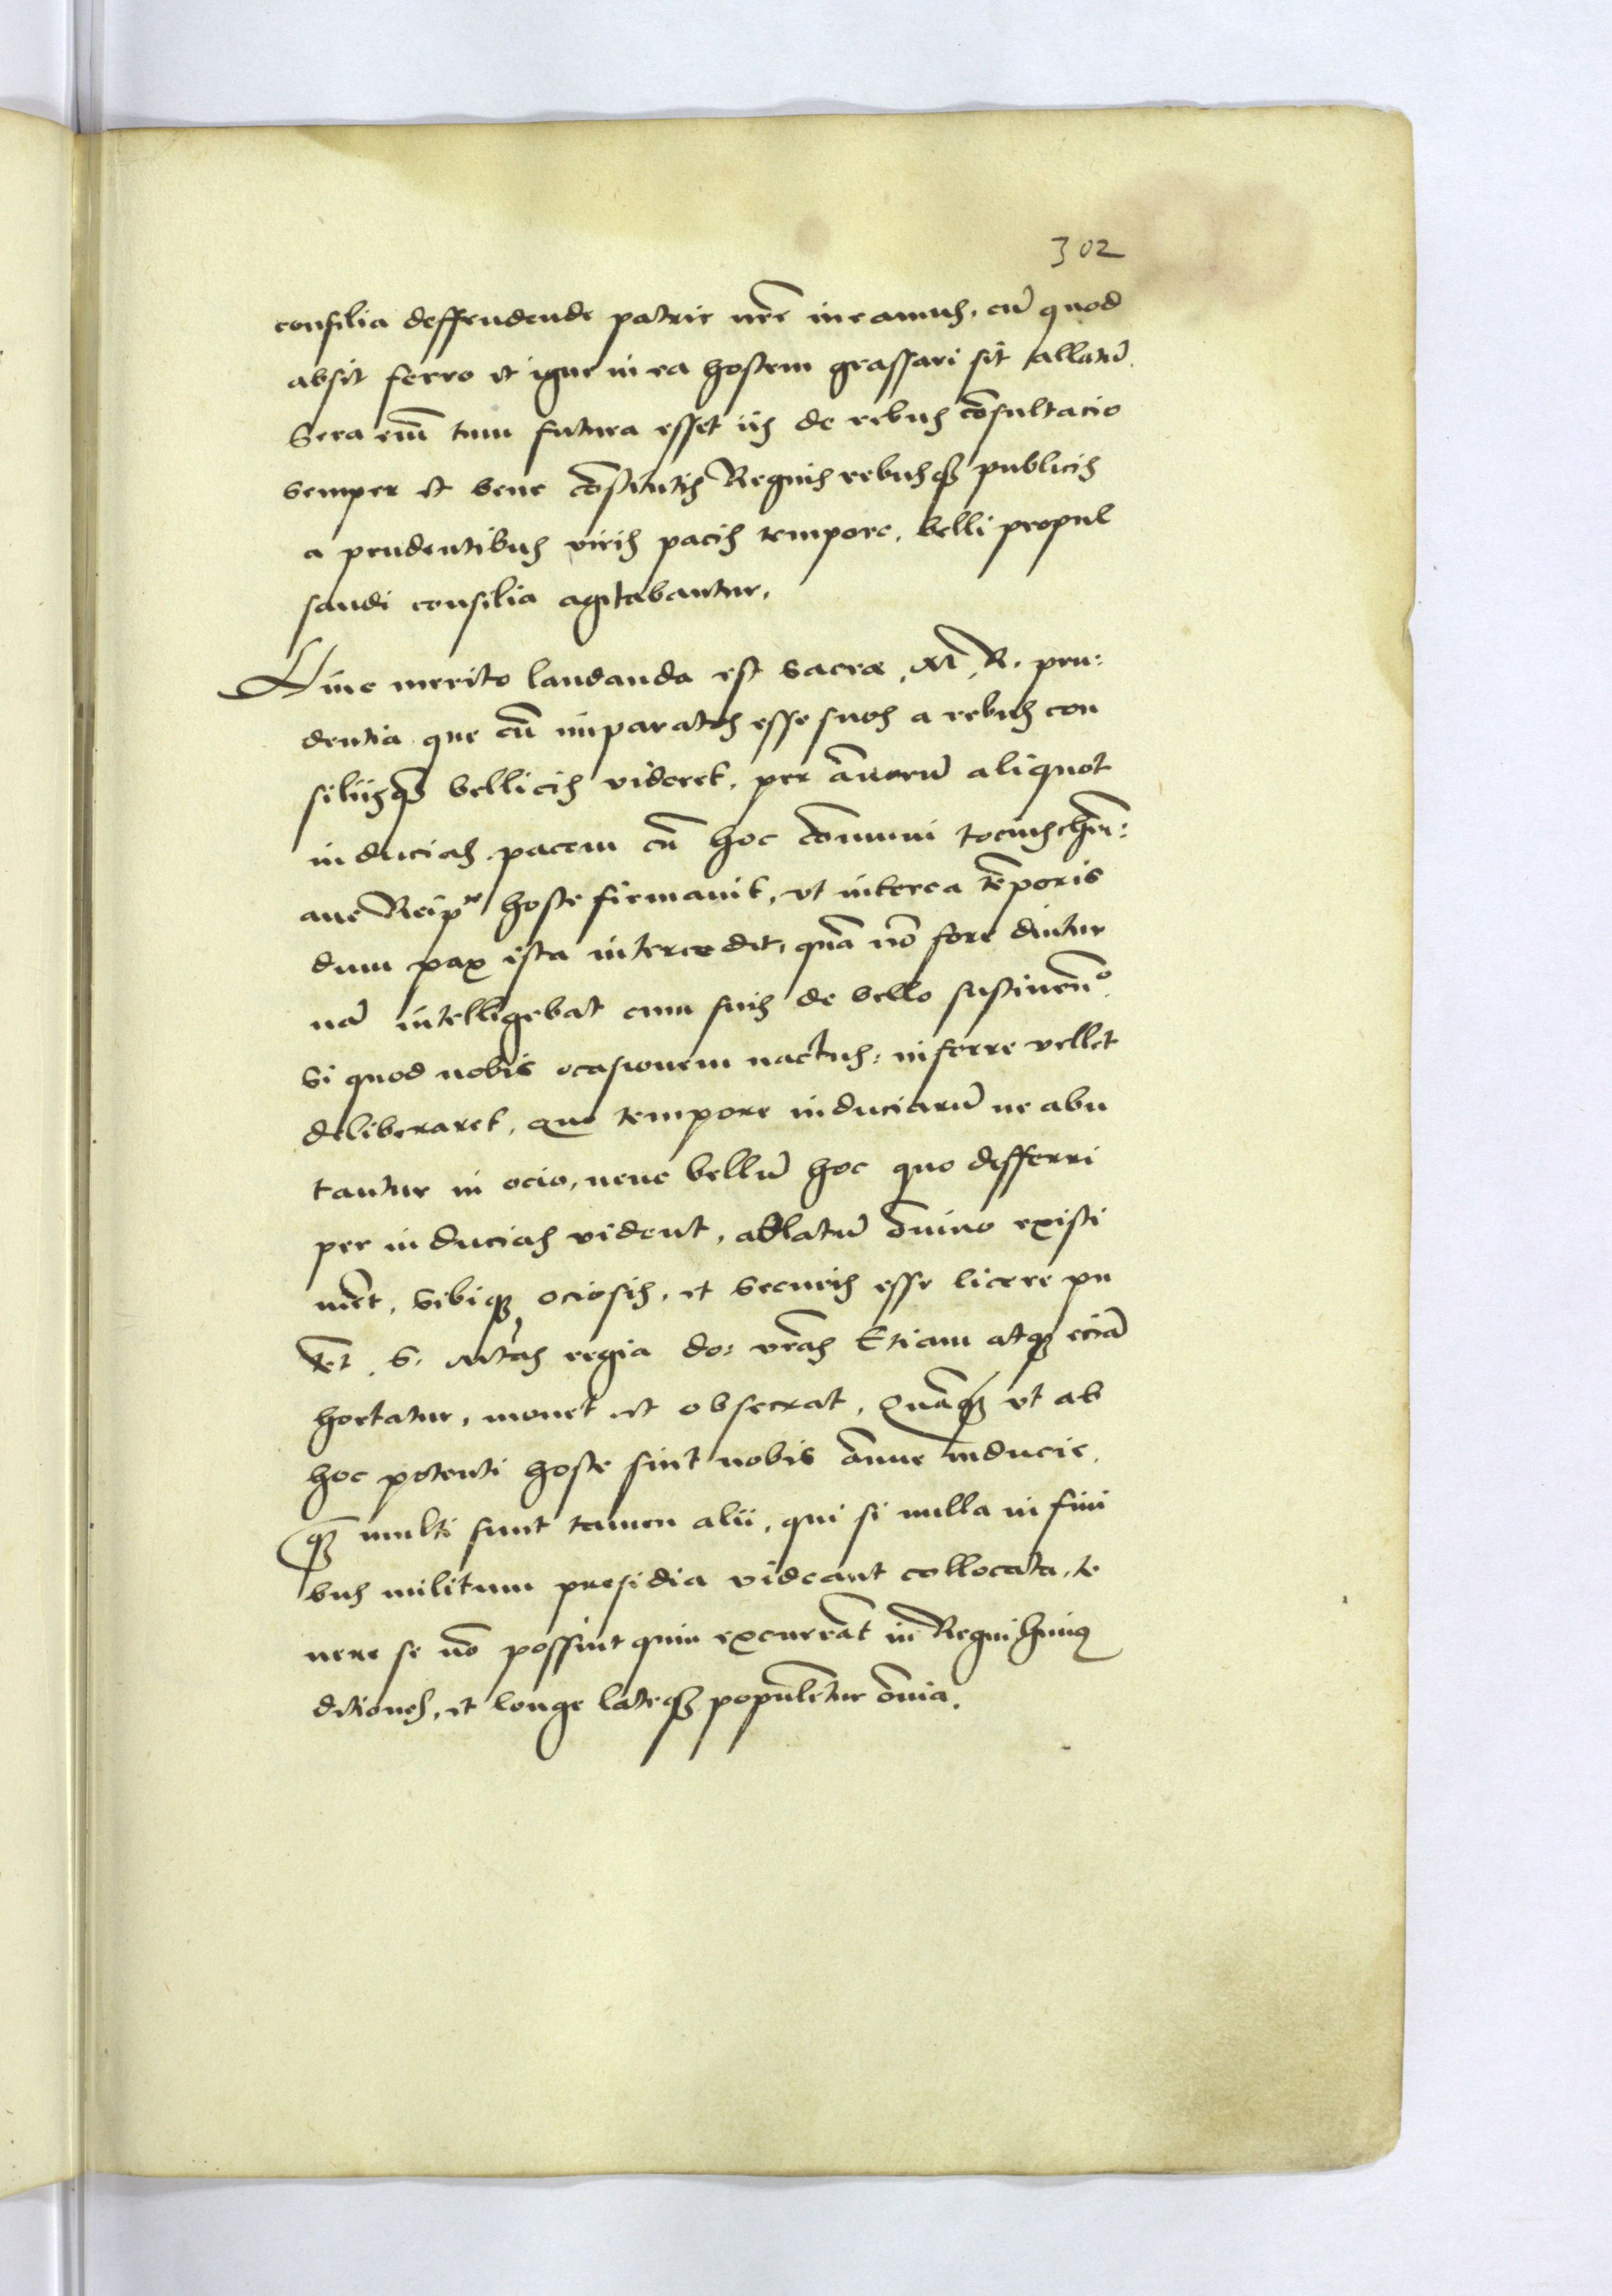 302
consilia deffendende patrie nr̄e ineamus, cū quod
absit ferro et igne in ea hostem grassari sit allatū.
Sera enī tum futura esset iis de rebus cōsultacio
semper et bene cōstitutis Regnis rebusq̃ publicis
a prudentibus viris pacis tempore, belli propul
sandi consilia agitabantur,
Hinc merito laudanda est Sacrae M. R. pru:
dentia que cū imparatos esse suos a rebus con
siliisq̃ bellicis videret, per annorū aliquot
inducias pacem cū hoc cōmuni tocius chr̄i:
ane Reip̄ce hoste firmavit, vt interea tēporis
dum pax ista intercedit, quā nō fore diutur
nā intelligebat cum suis de bello sustinen̄o
Si quod nobis ocasionem nactus: inferre vellet
deliberaret, quo tempore induciarū ne abu
tantur in ocio, neve bellū hoc quo differri
per inducias vident, ablatū ōnino existi
mēt, Sibiq̃ ociosis, et Securis esse licere pu
tēt. S. Mtas regia do: vr̄as Etiam atq̃ eciā
hortatur, monet et obsecrat, Quāq̃ vt ab
hoc potenti hoste sint nobis ānue inducie,
q̃ multi sunt tamen alii, qui si nulla in fini
bus militum presidia videant collocata, te
nere se nō possint quin excurrāt in Regni huius
ditiones, et longe lateq̃ populētur ōnia.